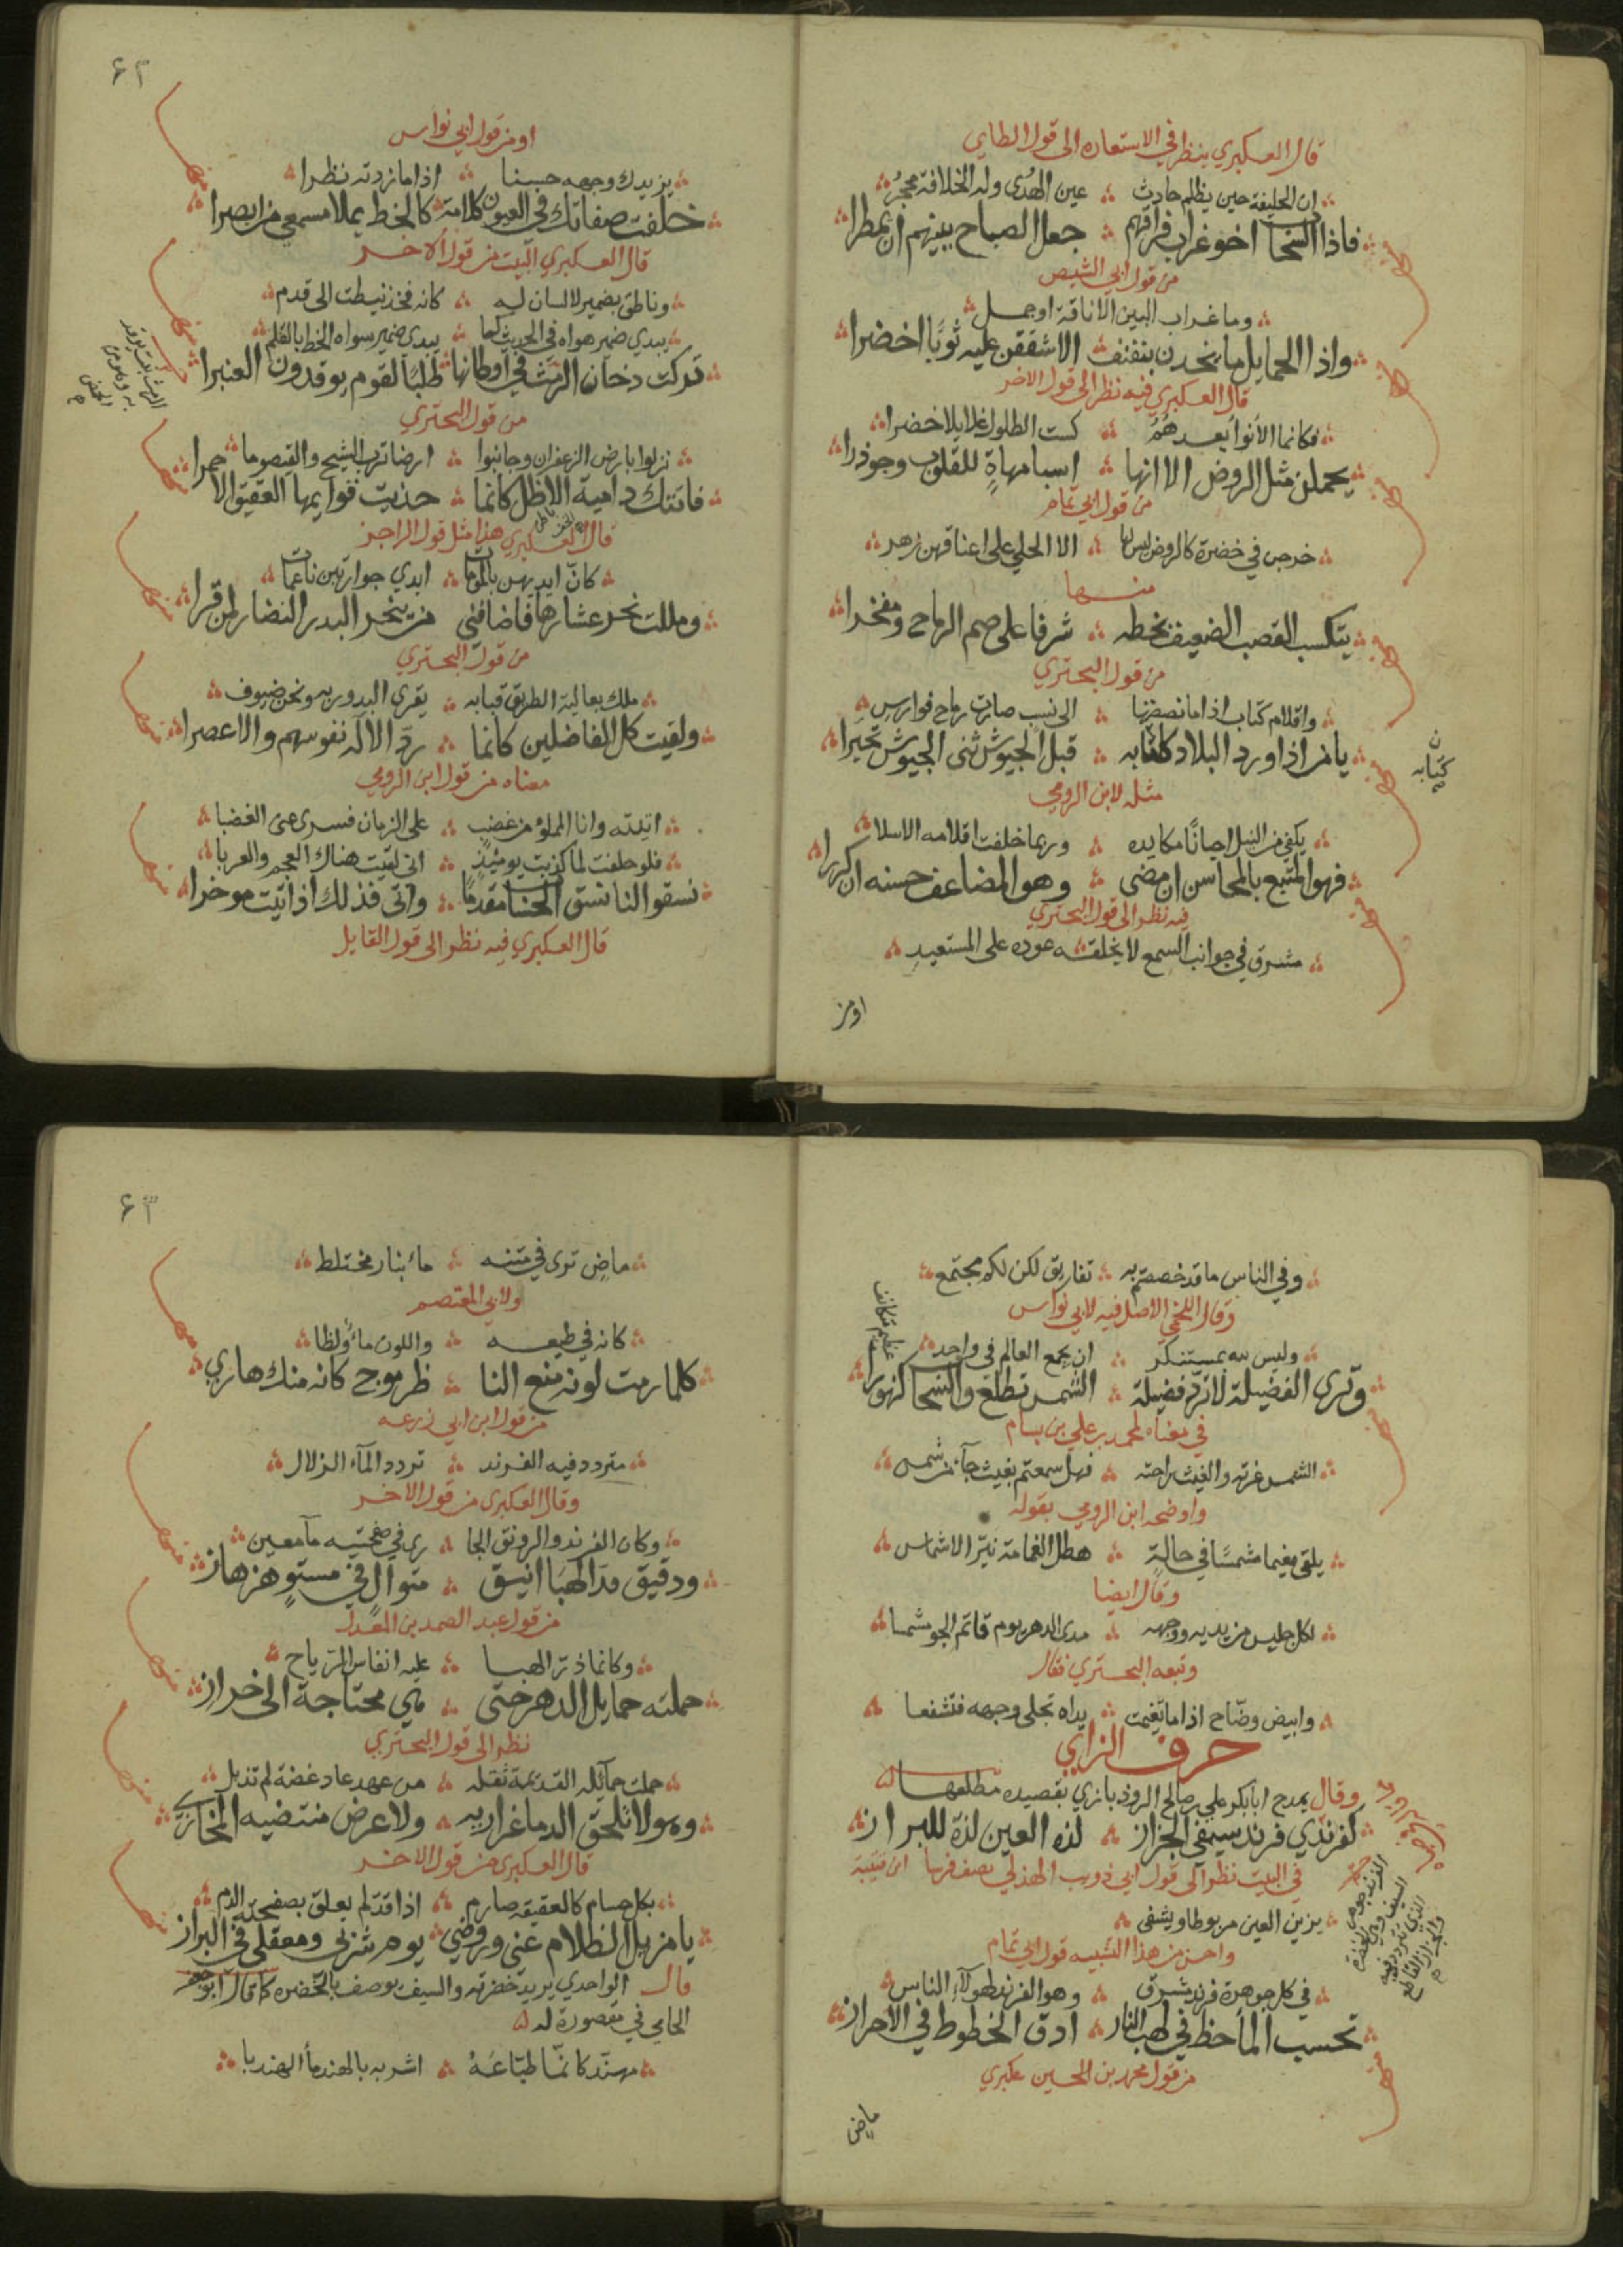 قال العكبري ينظر في الاستعاره الى قول الطاي
ان الخليفة حين يظلم حادث عين الهدى وله الخلافة محجر
فاذا السحاب اخو غراب فراقهم جعل الصياح ببينهم ان يمطرا
من قول ابي الشيص
وما غراب البين الا ناقة او جمل
واذا الحمايل ما يخدن بنفنف الا شققن عليه ثوبا اخضرا
قال العكبري فيه نظر الى قول الاخر
فكانما الأنواء بعدهم كست الطلول غلايلا خضرا
يحملن مثل الروض الا انها اسبا مهاةٍ للقلوب وجوذرا
من قول ابي تمام
خرجن في خضرة كالروض ليس لها الا الحلي على اعناقهن زهر
منها
يتكسب القصب الضعيف بخطه شرفا على صم الرماح ومفخرا
من قول البحتري
واقلام كتاب اذا ما نصصتها الى نسب صارت رماح فوارس
يا من اذا ورد البلاد كتابه قبل الجيوش ثنى الجيوش تحيرا
ن كتابه
مثله لابن الرومي
يكفي من النبل احيانا مكايده وربما خلفت اقلامه الاسلا
فهو المتبع بالمحاسن ان مضى وهو المضاعف حسنه ان كررا
فيه نظر الى قول البحتري
مشرق في جوانب السمع لا يخلقه عوده على المستعيد
او من
٦٢
او من قول ابي نواس
يزيدك وجهه حسنا اذا ما زدته نظرا
خلفت صفاتك في العيون كلامه كالخط يملا مسمعي من ابصرا
قال العكبري البيت من قول الاخر
وناطق بضمير لا لسان له كانه فخذ نيطت الى قدم
يبدي ضمير هواه في الحديث كما يبدي ضمير سواه الخط بالقلم
تركت دخان الرمث في اوطانها طلبا لقوم يوقدون العنبرا
الرمث نبت يوقد به وهو من الحمض
من قول البحتري
نزلوا بارض الزعفران وجانبوا ارضا ترب الشيح والقيصوما
فاتتك دامية الاظل كانما حذيت قوايمها العقيق الاحمرا
قال العكبري هذا مثل قول الراجز
كان ايديهن بالموماة ايدي جوار بتن ناعمات
ومللت نحر عشارها فاضافني من ينحر البدر النضار لمن قرا
من قول البحتري
ملك بعالية الطريق قبابه يقري البدور به ونحن ضيوف
ولقيت كل الفاضلين كانما رد الاله نفوسهم والاعصرا
معناه من قول ابن الرومي
اتيته وانا المملو من غضب على الزمان فسرى عني الغضبا
فلو حلفت لما كذبت يومئذ اني لقيت هناك العجم والعربا
نسقوا لنا نسق الحساب مقدما واتى فذلك اذ اتيت موخرا
قال العكبري فيه نظر الى قول القايل
وفي الناس ما قد خصصتم به تفاريق لكن لكم مجتمع
وقال اللخمي الاصل فيه لابي نواس
وليس لله بمستنكر ان يجمع العالم في واحد
وترى الفضيلة لا ترد فضيلة الشمس تطلع والسحاب كنهورا
في معناه لمحمد بن علي بن بسام
الشمس غرته والغيث راحته فهل سمعتم بغيث جآء من شمس
واوضحه ابن الرومي بقوله
يلقى مغيما مشمسا في حالة هطل الغمامة نير الاشماس
وقال ايضا
لكل جليس من يديه ووجهه مدى الدهر يوم قاتم الجو شمسا
وتبعه البحتري فقال
وابيض وضاح اذا ما تغيمت يداه تجلى وجهه فتقشعا
حرف الزاي
وقال يمدح ابا بكر علي بن صالح الروذبازي بقصيده مطلعها
كفرندي فرند سيفي الجراز لذة العين لذة للبراز
في البيت نظر الى قول ابي ذويب الهذلي يصف فرسا
يزين العين مربوطا ويشفى
واحسن من هذا التشبيه قول ابي تمام
في كل جوهرة فرند مشرق وهو الفرند لهولاء الناس
تحسب الماء خط في لهب النار ادق الخطوط في الاحراز
من قول محمد بن الحسين عكبري
ماض
٦٣
ماض ترى في متنه ماء بنار مختلط
ولابي المعتصم
كانه في طبعه واللون ماء ولظا
كلما رمت لونه منع النا ظر موج كانه منك هازي
من قول ابن ابي زرعه
متردد فيه الفرند تردد المآء الزلال
وقال العكبري من قول الاخر
وكان الفرند والرونق الجا ري في صفحتيه مآ معين
ودقيق قذا الهبا انيق متوال في مستو هزهاز
من قول عبد الصمد بن المعدل
وكانما ذر الهبا عليه انفاس الرياح
حملته حمايل الدهر حتى هي محتاجة الى خراز
نظر الى قول البحتري
حملت حمآئله القديمة بقله من عهد عاد غضة لم تذبل
وهو لا تلحق الدما غراريه ولا عرض منتضيه المخازي
قال العكبري من قول الاخر
بكل حسام كالعقيقه صارم اذا قد لم يعلق بصفحته الدم
يا مزيل الظلام عني وروضي يوم شربي ومعقلي في البراز
قال الواحدي يريد خضرته والسيف يوصف بالخضره كما قال ابو جعفر
الحامي في مقصورة له
مهند كانما طباعه اشربه بالهند ماء الهندبا